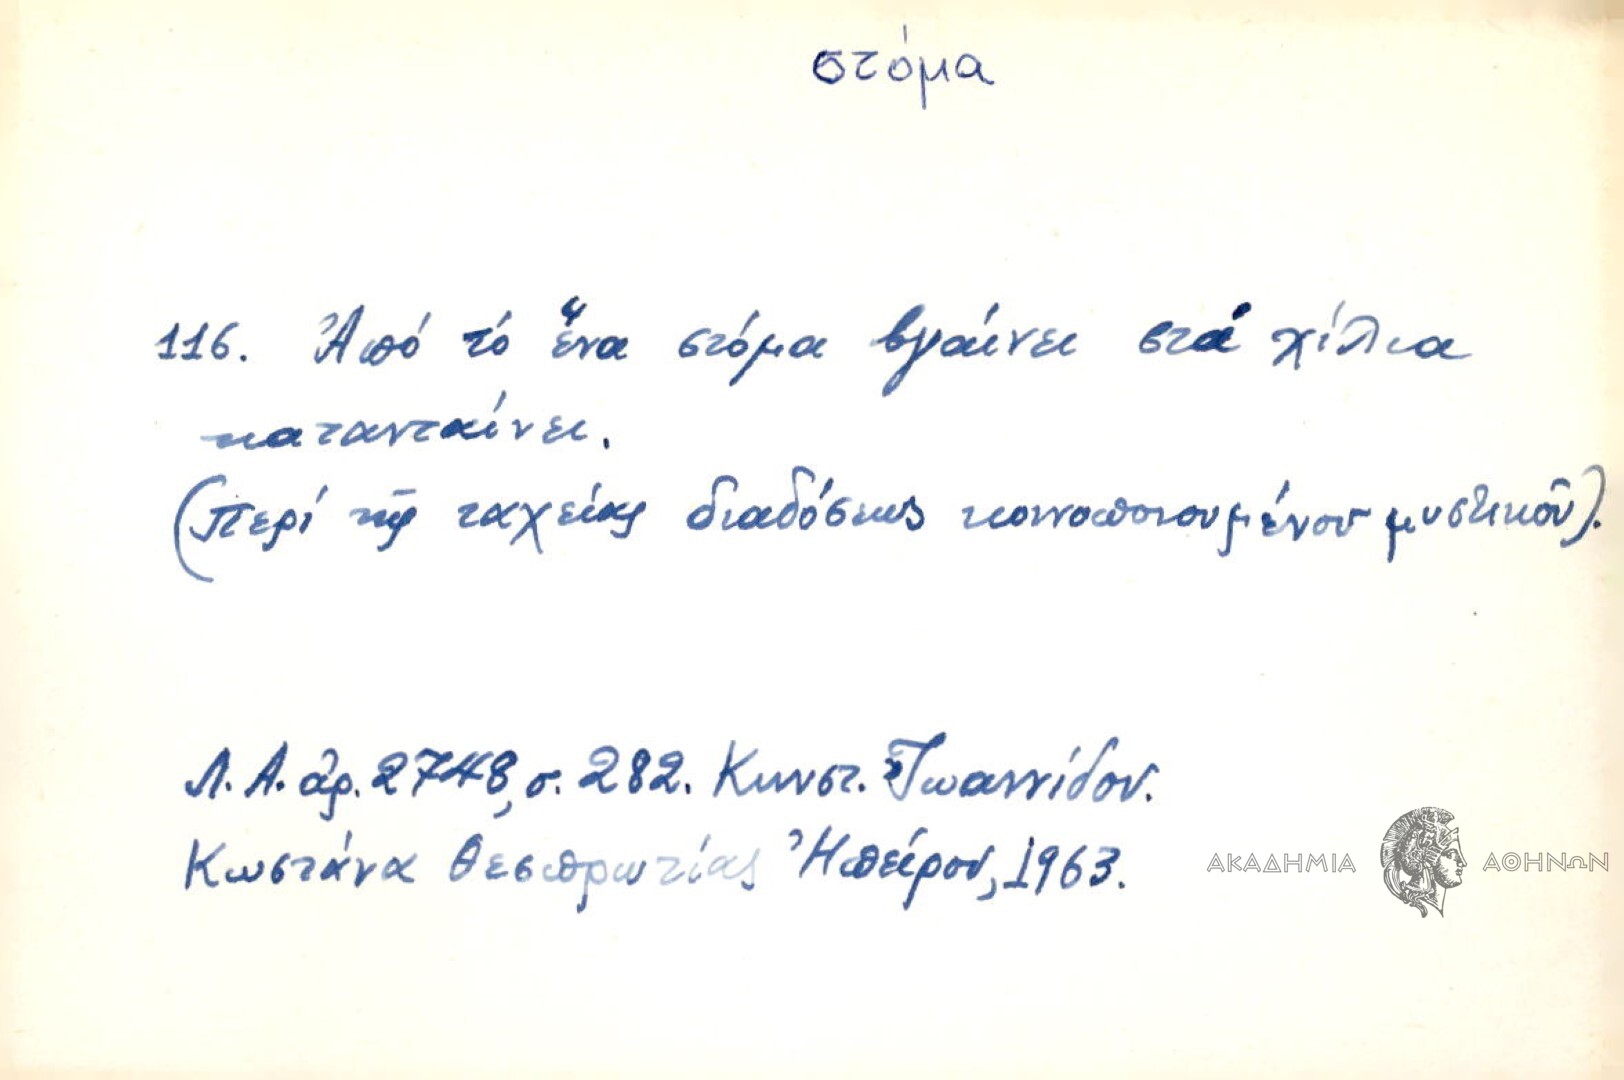 στόμα
116. Ἀπό τό ἕνα στόμα βγαίνει στά χίλια
κατανταίνει.
(Περί τῆς ταχείας διαδόσεως κοινοποιουμένου μυστικοῦ).
Λ. Α. ἀρ. 2748, σ. 282. Κωνστ. Ἰωαννίδου.
Κωστάνα Θεσπρωτίας Ἠπείρου, 1963.
ΑΚΑΔΗΜΙΑ ΑΘΗΝΩΝ